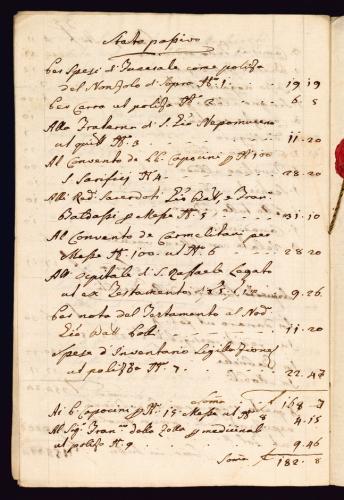 Stato passivo
Per Spesi di Funerale come polizza
del Nonzolo di Sopra N. 1 19 19
Per Cera ut polizza N. 2 6 8
Alla Fraterna di S. Gio Nepomuceno
ut quitt N. 3 11.20
Al Convento de PP. Capocini p N. 100
S. Sacrifici N. 4 28.20
Alli Red. Sacerdoti Gio Batt, e Fran.
Baldassi p Messe N. 5 31.10
Al Convento de Carmelitani per
Messe N. 100. ut N. 6 28 20
All Ospitale di S. Raffaele Legato
ut ex Testamento 9.26.
Per nota del Testamento al Nod
Gio Batt 11.20
Spese d' Inventario
ut polizza N. 7. 22.47
Soma 168 7
Ai P. Capocini p N. 15 Messe ut N. 8 4.15
Al Sig. Fran. dalla Zotta p medicinali
ut polizza N. 9 9.46
Soma 182. 8